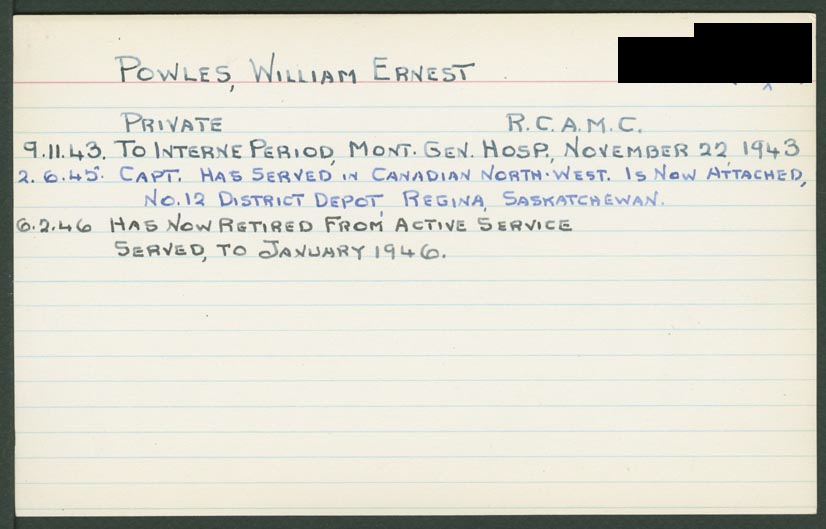 POWLES, WILLIAM ERNEST
PRIVATE R.C.A.M.C.
9.11.43. TO INTERNE PERIOD, MONT. GEN. HOSP., NOVEMBER 22, 1943
2.6.45. CAPT. HAS SERVED IN CANADIAN NORTH-WEST. IS NOW ATTACHED,
NO.12 DISTRICT DEPOT, REGINA, SASKATCHEWAN.
6.2.46 HAS NOW RETIRED FROM ACTIVE SERVICE
SERVED, TO JANUARY 1946.